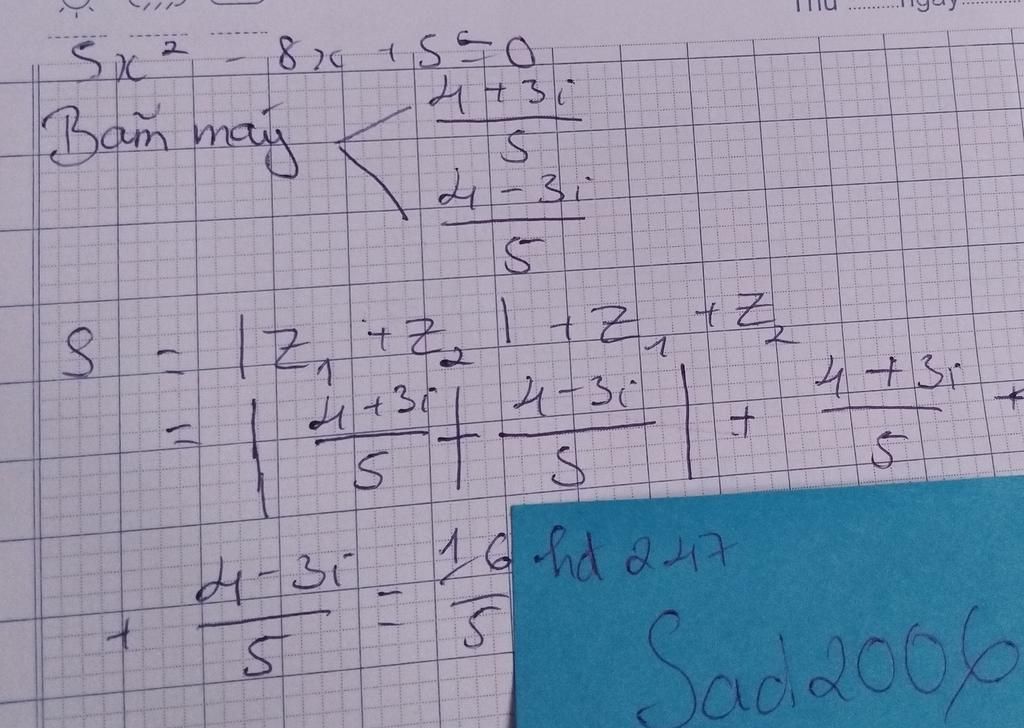 Thứ ........ ngày ........
5x² - 8x + 5 = 0
Bấm máy < (4 + 3i)/5
(4 - 3i)/5
S = |Z₁ + Z₂| + Z₁ + Z₂
= |(4 + 3i)/5 + (4 - 3i)/5| + (4 + 3i)/5 +
+ (4 - 3i)/5 = 16/5
hd 247
Sad2006